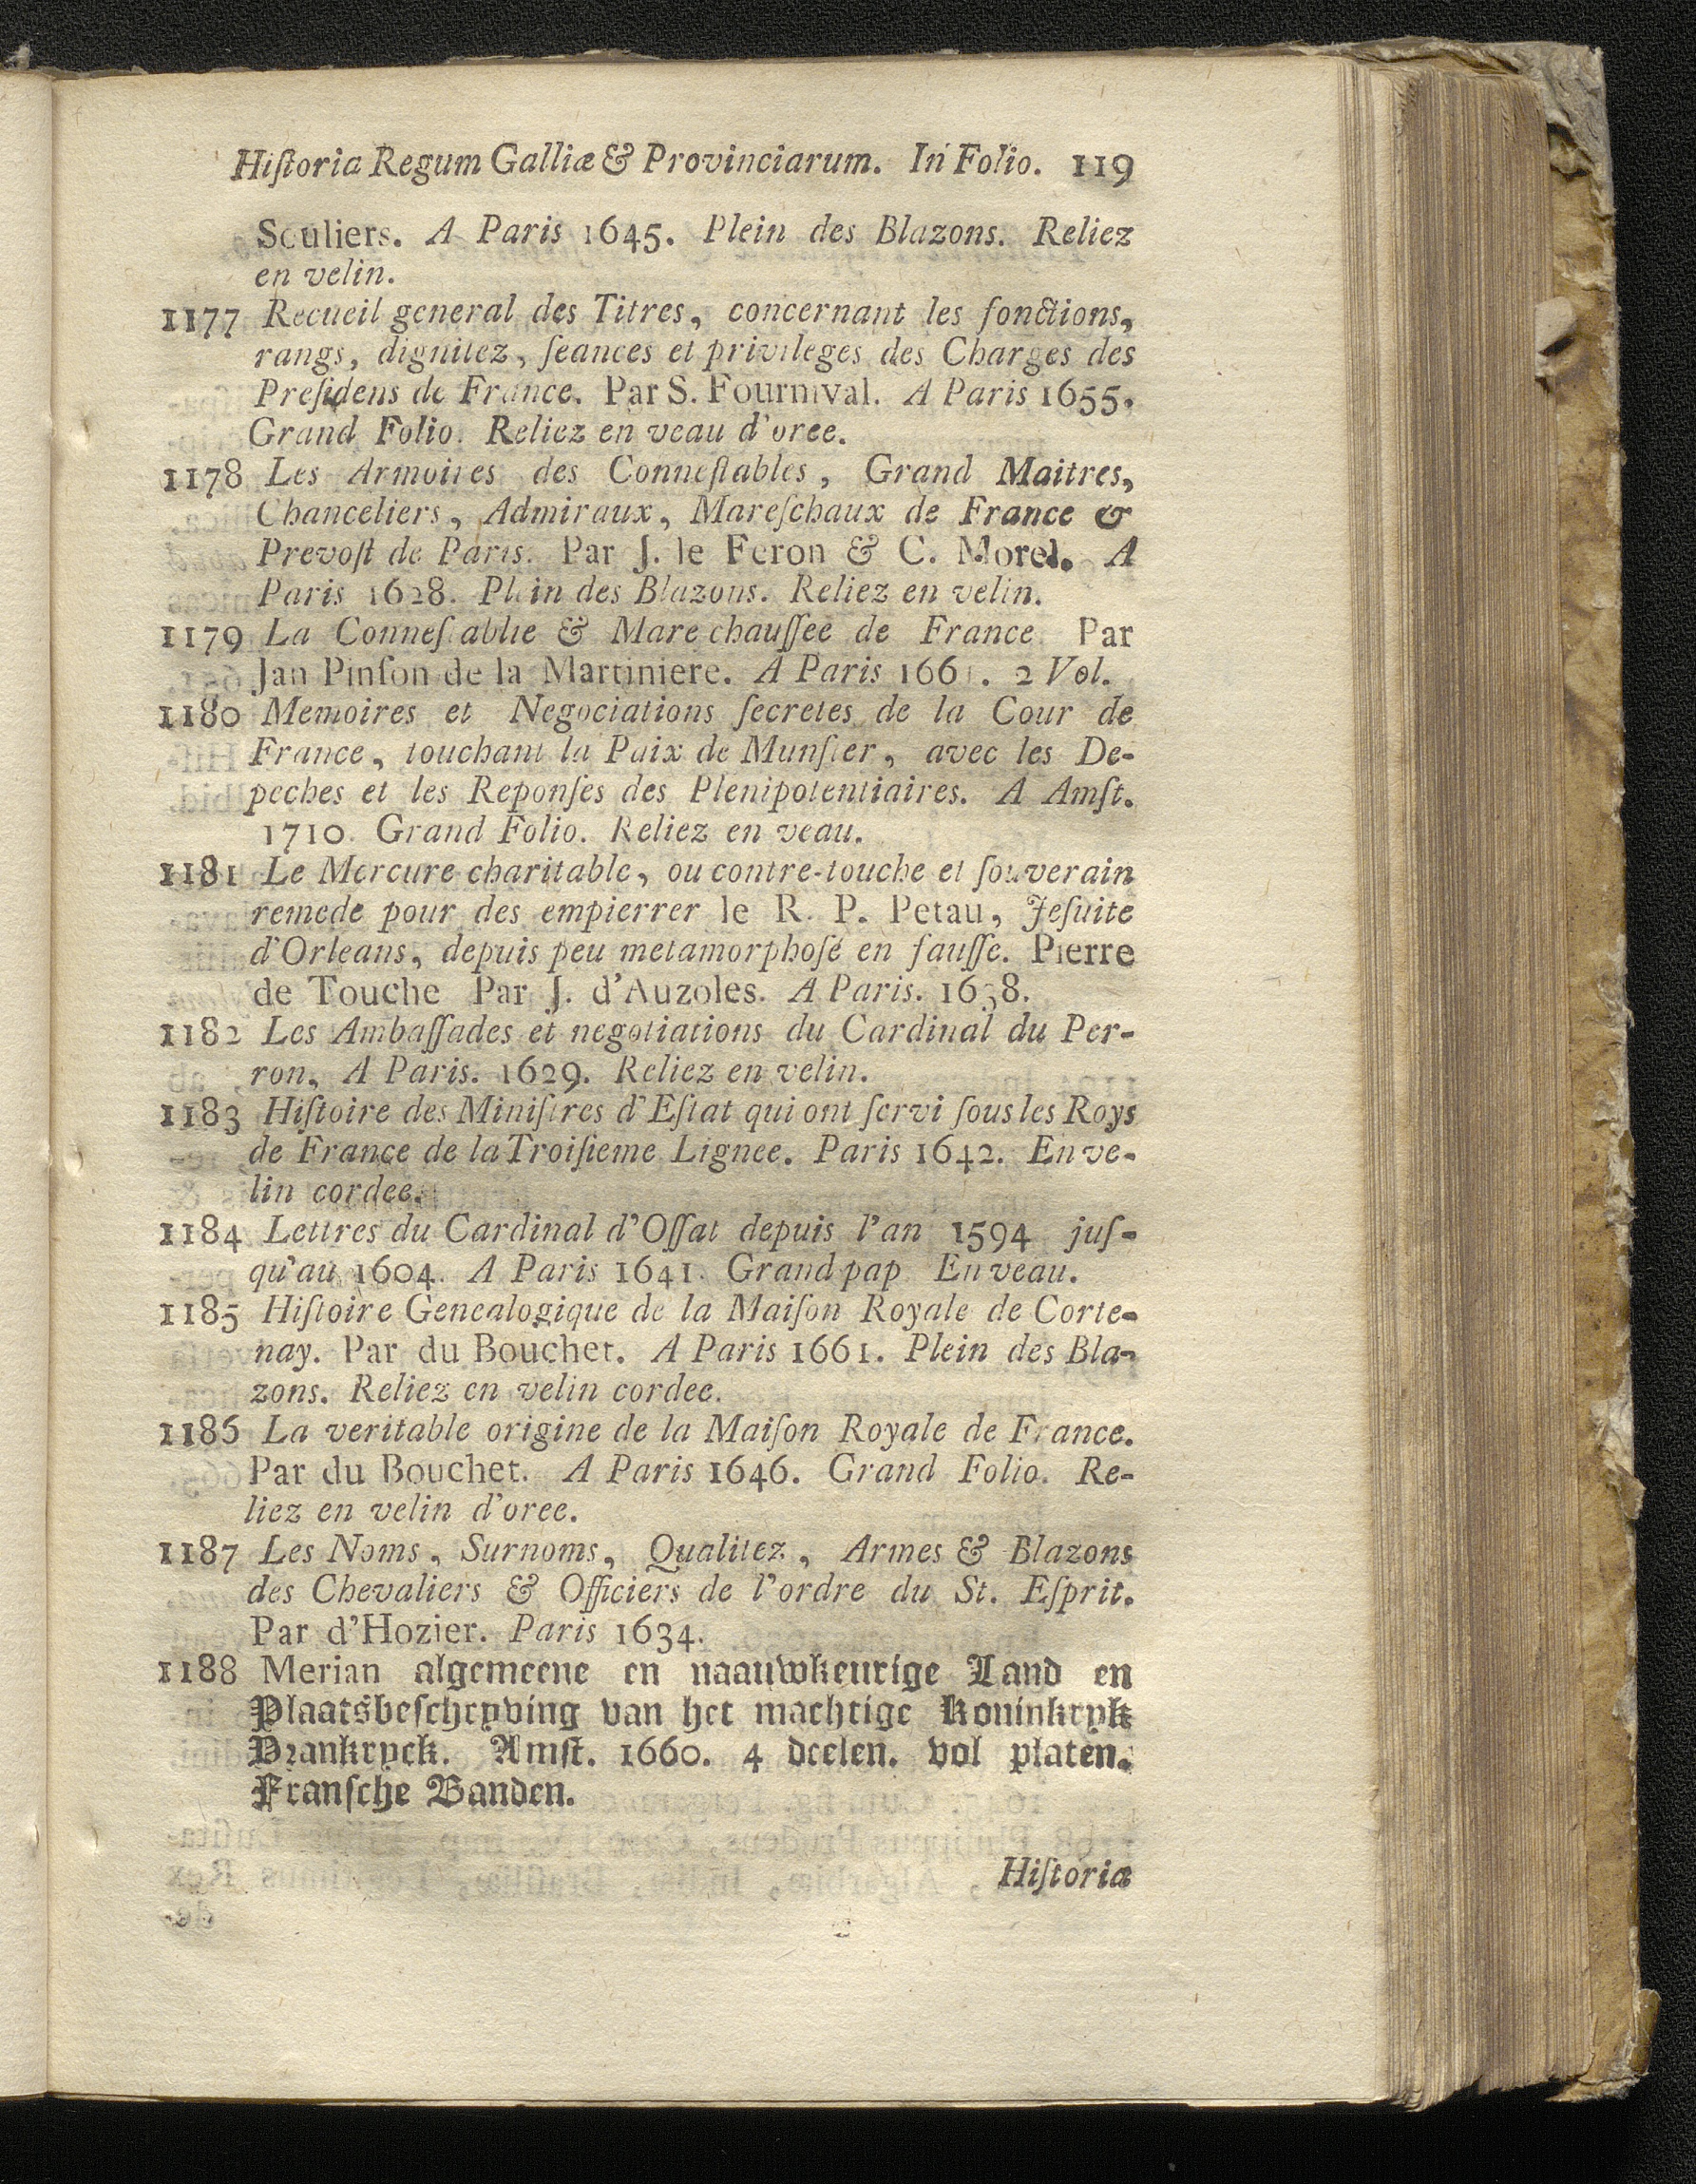 Hiſtoria Regum Galliæ & Provinciarum. In Folio. 119
Souliers. A Paris 1645. Plein des Blazons. Reliez
en velin.
1177 Recueil general des Titres, concernant les fonctions,
rangs, dignitez, ſeances et privileges des Charges des
Preſidens de France. Par S. Fournival. A Paris 1655.
Grand Folio. Reliez en veau d'oree.
1178 Les Armoires des Conneſtables, Grand Maitres,
Chanceliers, Admiraux, Mareſchaux de France &
Prevoſt de Paris. Par J. le Feron & C. Morel. A
Paris 1628. Plein des Blazons. Reliez en velin.
1179 La Conneſtablie & Mare chauſſee de France Par
Jan Pinſon de la Martiniere. A Paris 1661. 2 Vol.
1180 Memoires et Negociations ſecretes de la Cour de
France, touchant la Paix de Munſter, avec les De-
peches et les Reponſes des Plenipotentiaires. A Amſt.
1710. Grand Folio. Reliez en veau.
1181 Le Mercure charitable, ou contre-touche et ſouverain
remede pour des empierrer le R. P. Petau, Jeſuite
d'Orleans, depuis peu metamorphoſé en fauſſe. Pierre
de Touche Par J. d'Auzoles. A Paris. 1638.
1182 Les Ambaſſades et negotiations du Cardinal du Per-
ron, A Paris. 1629. Reliez en velin.
1183 Hiſtoire des Miniſtres d'Eſtat qui ont ſervi ſous les Roys
de France de la Troiſieme Lignee. Paris 1642. En ve-
lin cordee.
1184 Lettres du Cardinal d'Oſſat depuis l'an 1594 juſ-
qu'au 1604. A Paris 1641. Grand pap En veau.
1185 Hiſtoire Genealogique de la Maiſon Royale de Corte-
nay. Par du Bouchet. A Paris 1661. Plein des Bla-
zons. Reliez en velin cordee.
1186 La veritable origine de la Maiſon Royale de France.
Par du Bouchet. A Paris 1646. Grand Folio. Re-
liez en velin d'oree.
1187 Les Noms, Surnoms, Qualitez, Armes & Blazons
des Chevaliers & Officiers de l'ordre du St. Eſprit.
Par d'Hozier. Paris 1634.
1188 Merian algemeene en naauwkeurige Land en
Plaatsbeſchryving van het machtige Koninkryk
Vrankryck. Amſt. 1660. 4 deelen. vol platen.
Franſche Banden.
Hiſtoria